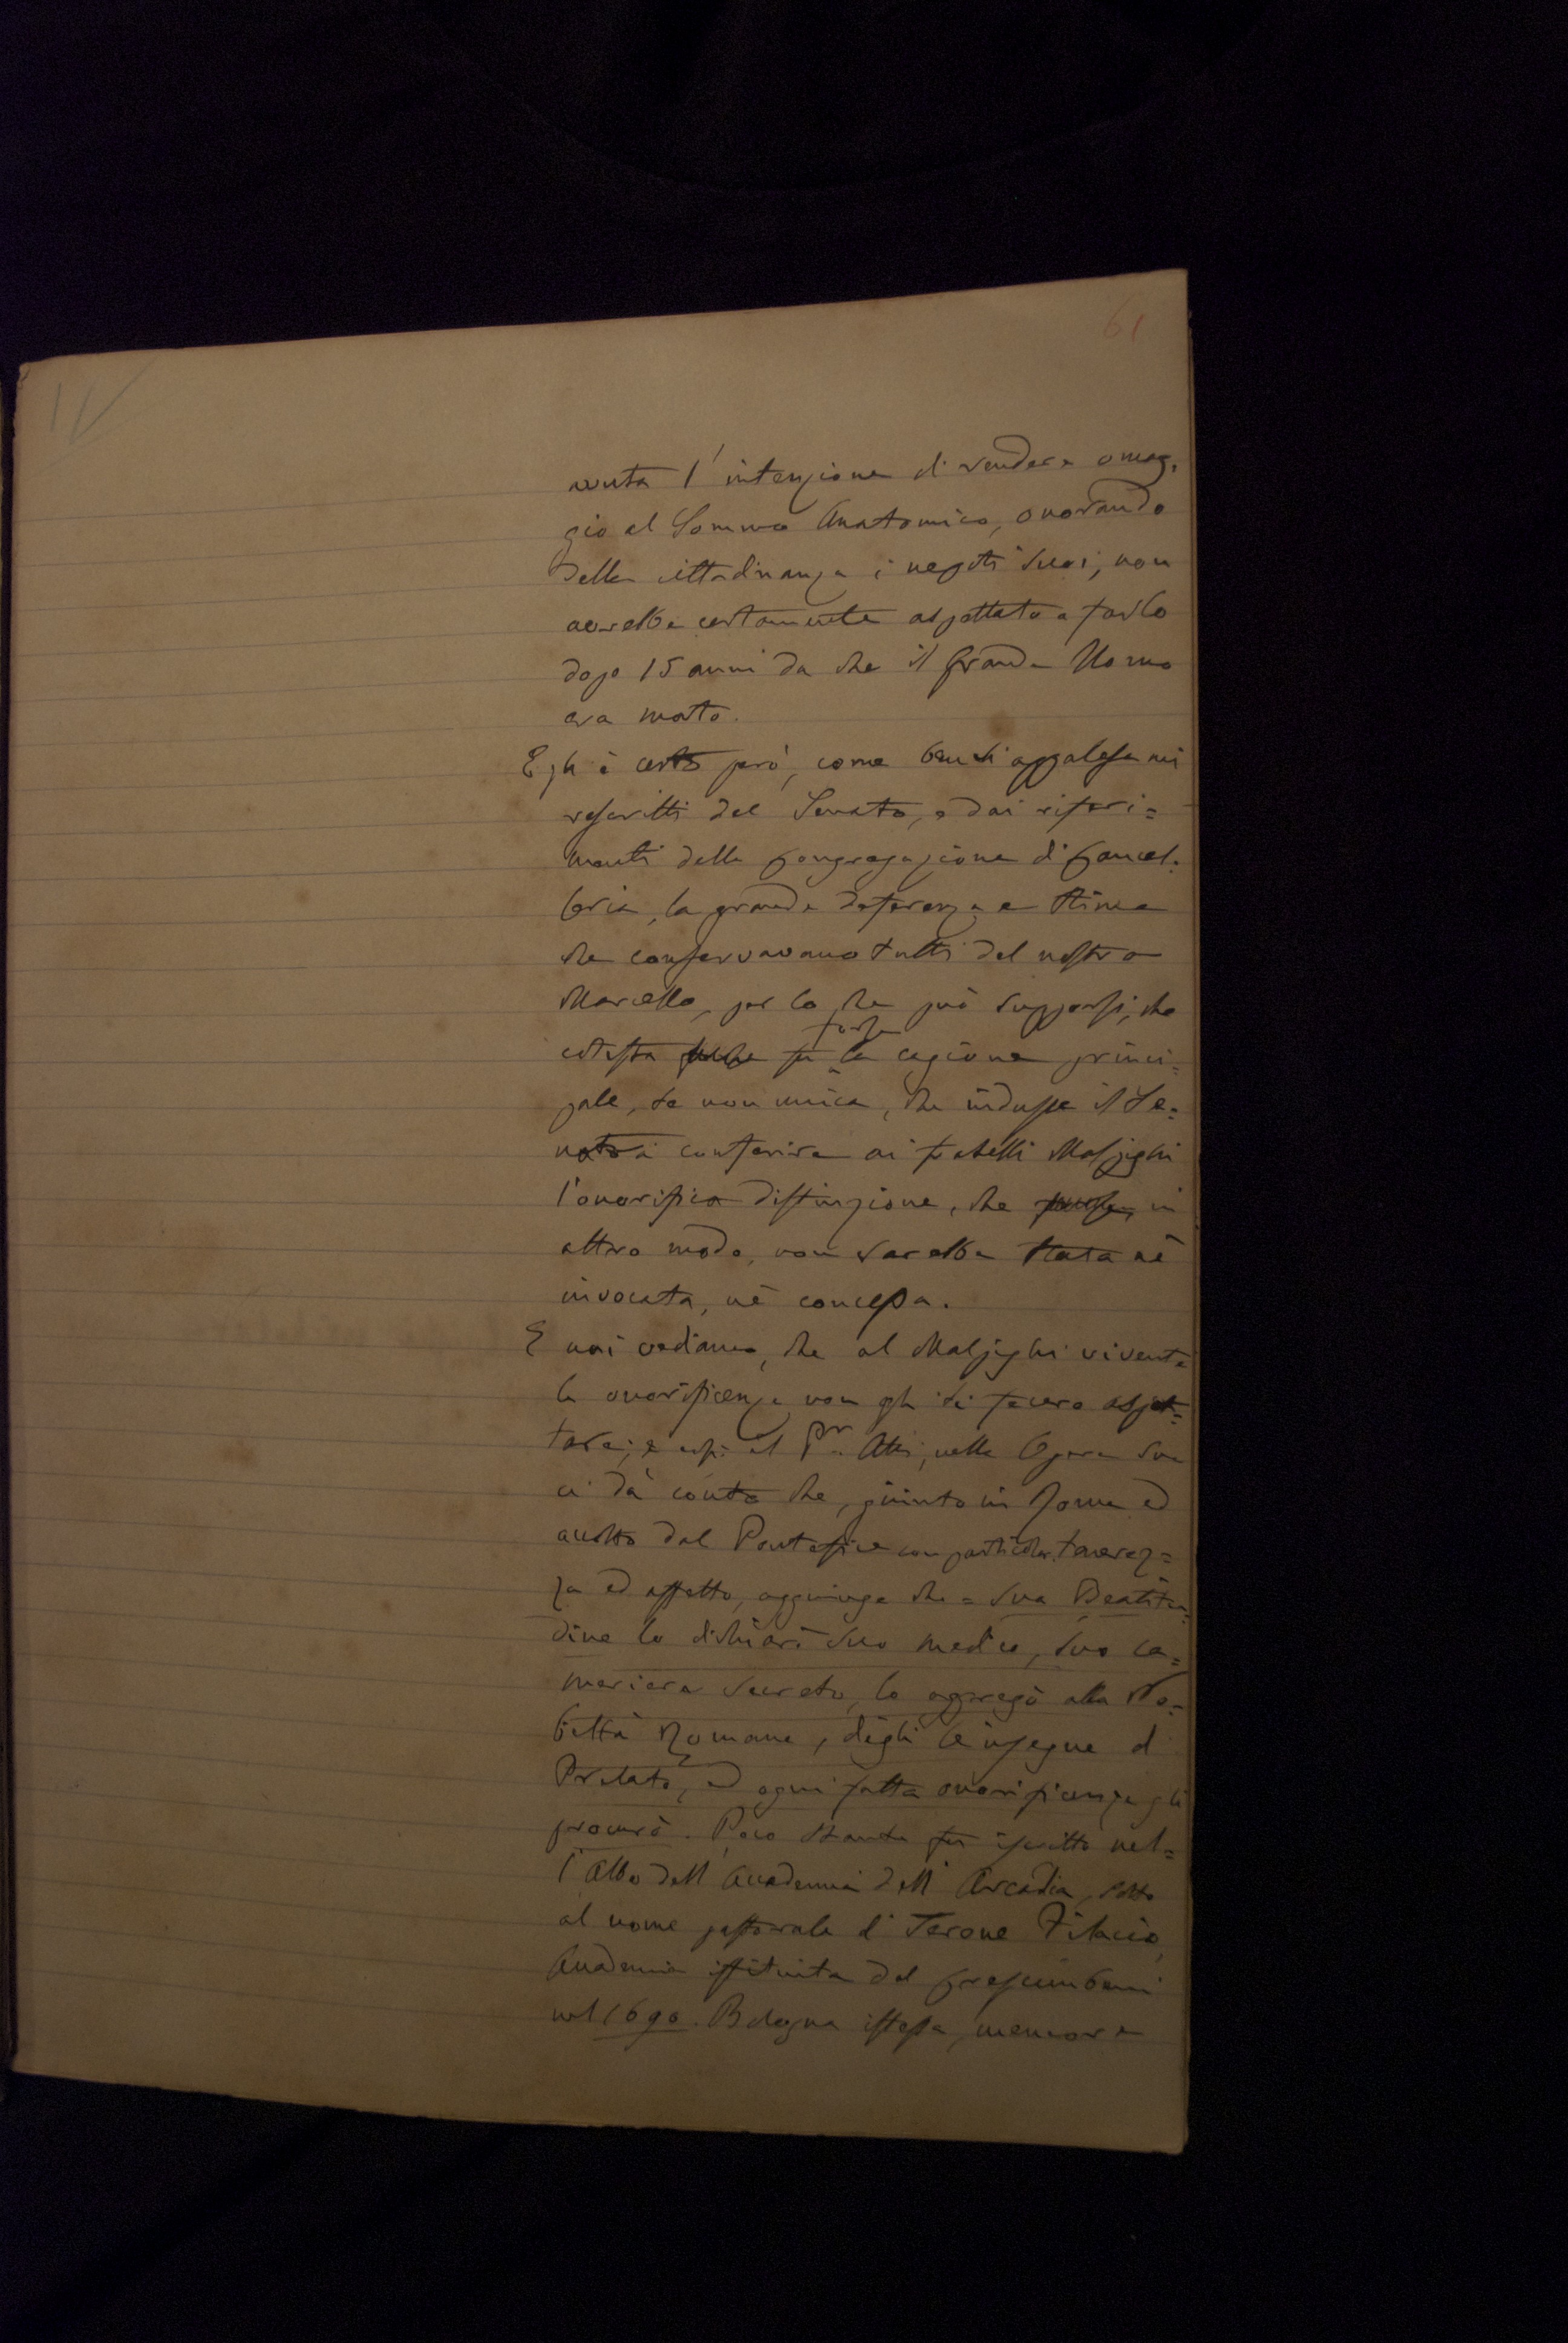 61
11
avuta l'intenzione di rendere omag=
gio al Sommo Anatomico, onorando
della cittadinanza i nepoti suoi, non
avrebbe certamente aspettato a farlo
dopo 15 anni da che il Grande Uomo
era morto.
Egli è certo però, come ben si appalesa nei
rescritti del Senato, e dai riferi=
menti della Congregazione di Cancel=
leria, la grande deferenza e stima
che conservavano tutti del nostro
Marcello, per lo che può supporsi, che
forse
cotesta fu la cagione princi=
pale, se non unica, che indusse il Se=
nato a conferire ai fratelli Malpighi
l'onorifica distinzione, che in
altro modo, non sarebbe stata nè
invocata, nè concessa.
E noi vediamo, che al Malpighi vivente
le onorificenze non gli si fecero aspet=
tare; e così il Pr. Atti, nella Opera sua
ci dà conto che, giunto in Roma ed
accolto dal Pontefice con particolar tenerez=
za ed affetto, aggiunge che = Sua Beatitu=
dine lo dichiarò suo medico, suo ca=
meriere secreto, lo aggregò alla No=
biltà Romana, diegli le insegne di
Prelato, ed ogni fatta onorificenza gli
procurò. Poco stante fu iscritto nel=
l'Albo dell'Accademia dell'Arcadia, sotto
al nome pastorale di Terone Filacio,
Accademia istituita dal Crescimbeni
nel 1690. Bologna istessa, memore